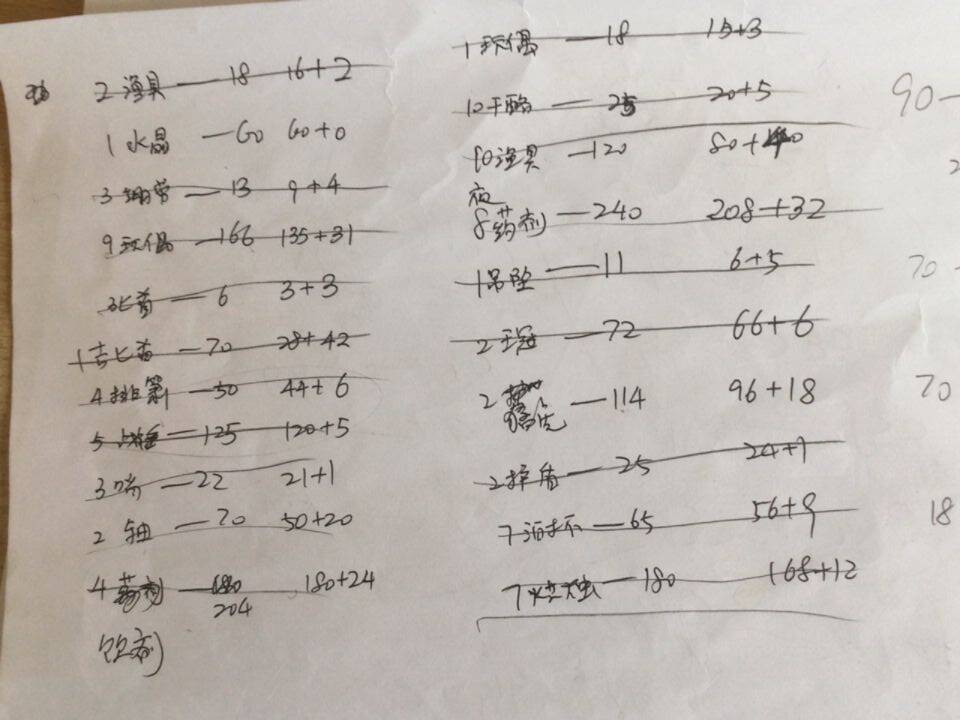 2 渔具 — 18 16+2
1 水晶 — 60 60+0
3 — 13 9+4
9 玩偶 — 166 135+31
— 6 3+3
1 — 70 28+42
4 排箫 — 50 44+6
5 — 125 120+5
3 — 22 21+1
2 轴 — 70 50+20
4 药剂 — 180+24
204
饮剂
1 玩偶 — 18 15+3
10 干酪 — 25 20+5
10 渔具 — 120 80+40
夜
8 药剂 — 240 208+32
1 吊坠 — 11 6+5
2 王冠 — 72 66+6
2 — 114 96+18
2 — 25 24+1
7 酒杯 — 65 56+9
7 — 180 168+12
90 —
2
70 -
70
18